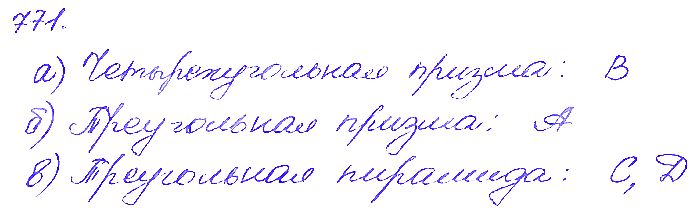 771.
а) Четырехугольная призма: В
б) Треугольная призма: А
в) Треугольная пирамида: С, Д